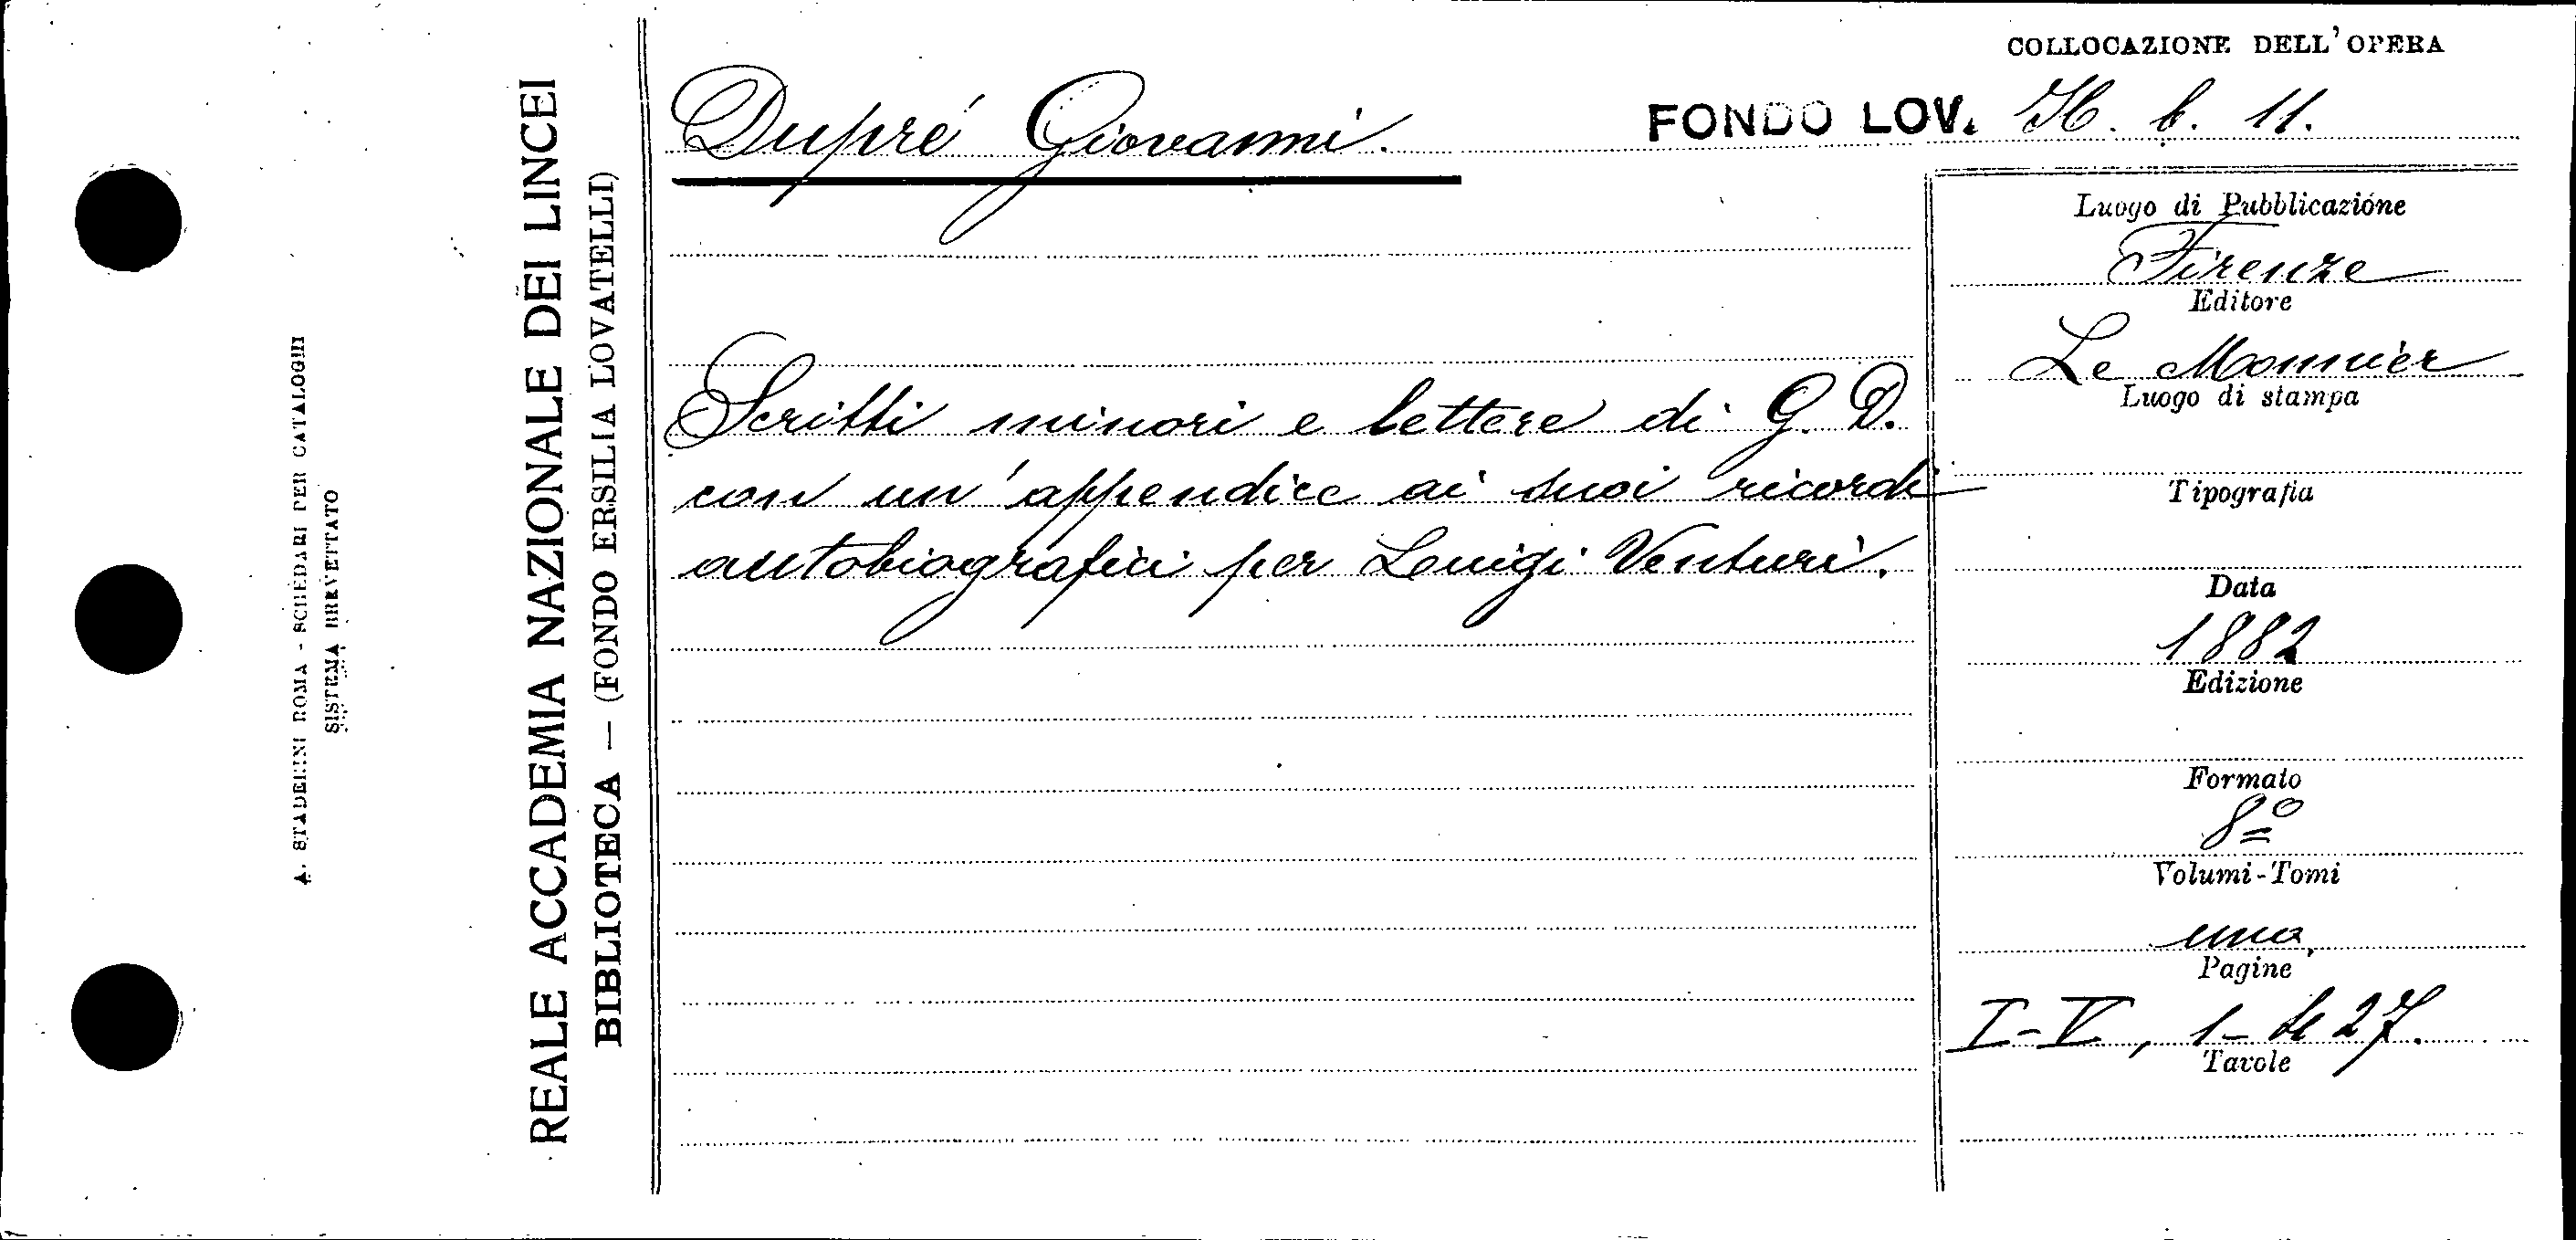 COLLOCAZIONE DELL'OPERA
Dupré Giovanni.
FONDO LOV. H. b. 11.
Scritti minori e lettere di G. D.
con un'appendice ai suoi ricordi
autobiografici per Luigi Venturi.
Luogo di Pubblicazione
Firenze
Editore
Le Monnier
Luogo di stampa
Tipografia
Data
1882
Edizione
Formato
8º
Volumi-Tomi
uno
Pagine
I-V, 1-427.
Tavole
REALE ACCADEMIA NAZIONALE DEI LINCEI
BIBLIOTECA — (FONDO ERSILIA LOVATELLI)
A. STADERINI ROMA - SCHEDARI PER CATALOGHI
SISTEMA BREVETTATO